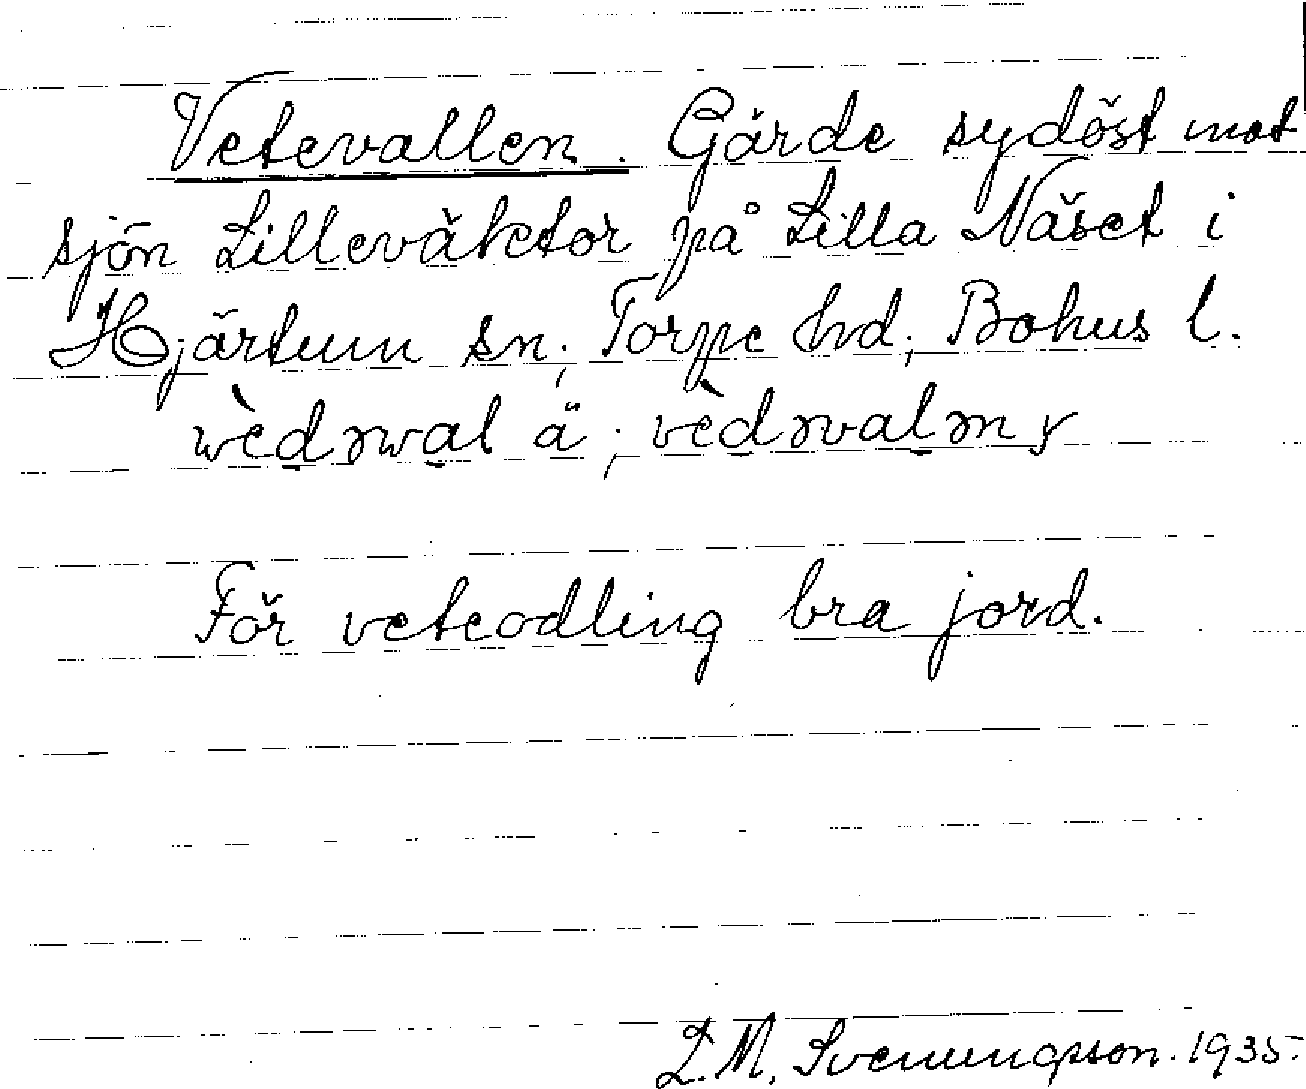 Vetevallen. Gärde sydöst mot
sjön Lilleväktor på Lilla Näset i
Hjärtum sn; Torpe hd; Bohus l.
För veteodling bra jord.
L. M. Svenungsson. 1935.